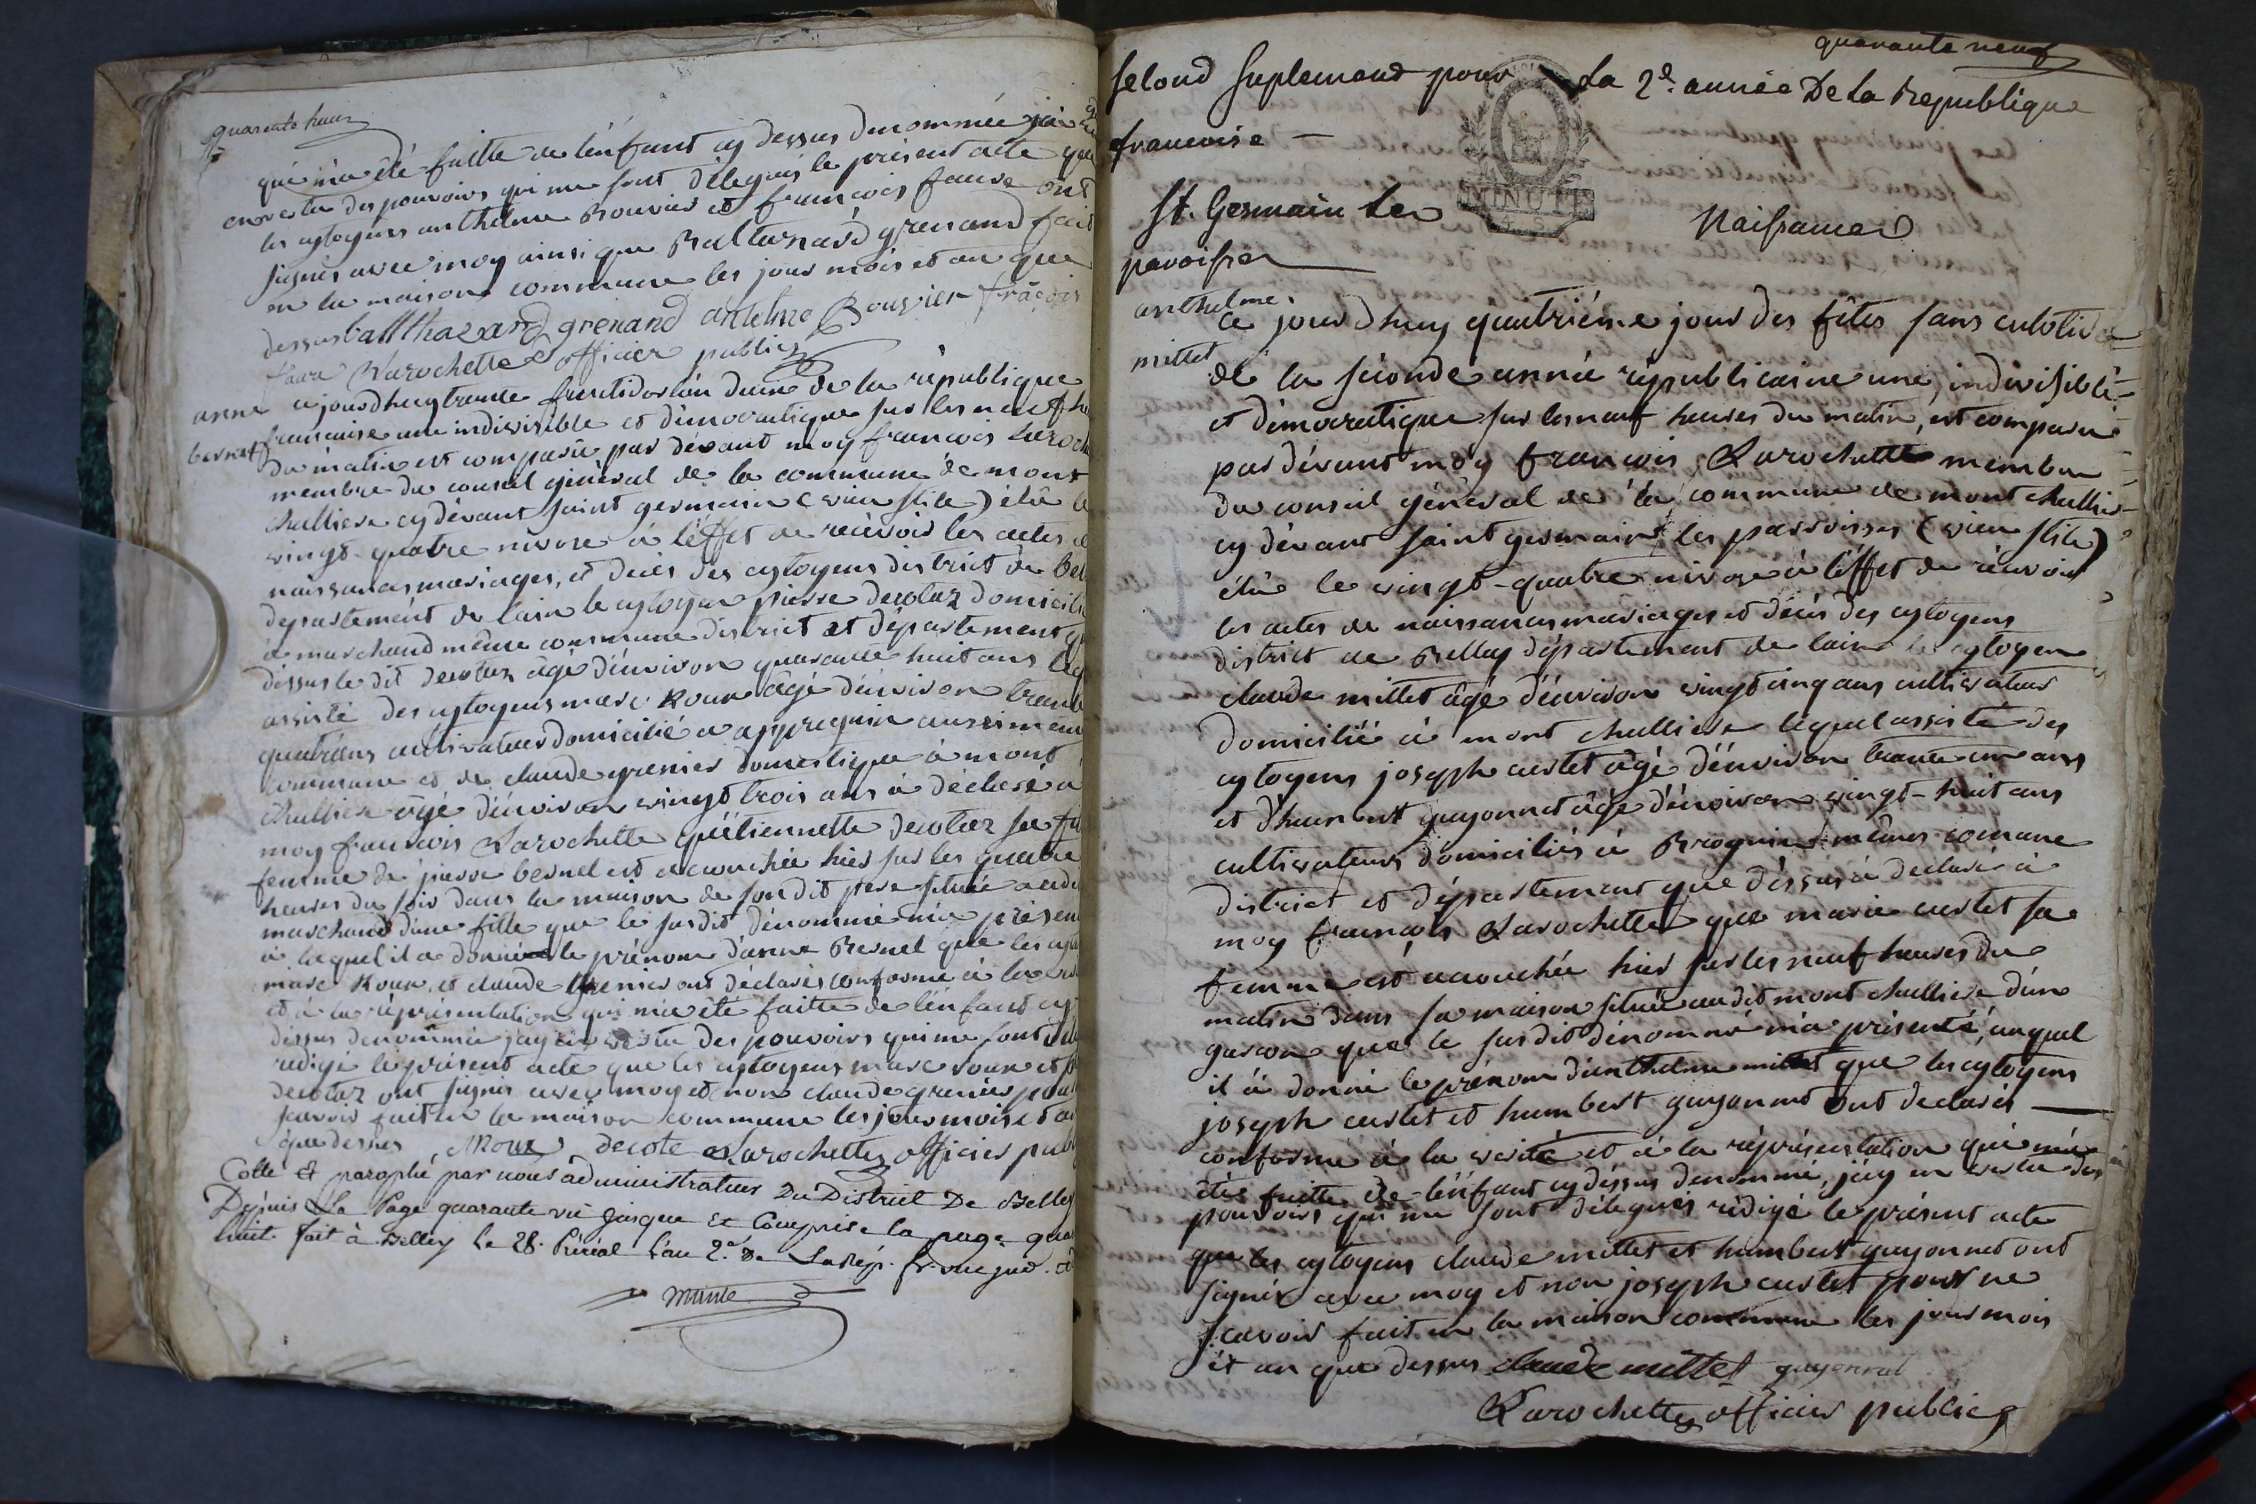 quarente huit
qui m'a été faitte de l'énfant cy dessus dénommée j'ai
en vertu des pouvoirs qui me sont délégués le présent acte que
les cytoyens anthelme Bouvier et francois faure ont
signés avec moy ainsi que Baltazard grenand fait
en la maison commune les jour mois et an que
dessus ballthazard grenand antelme Bouvier françois
faure Larochette officier public
anne
bernel
ce jourdhuy trente fructidor l'an deux de la république
francaise une indivisible et démocratique sur les neuf
du matin est comparu par dévant moy francois
membre du conseil général de la commune de mont
challiere cy dévant saint germain (vieu stile) élu
vingt-quatre nivose à l'éffet de recevoir les actes
naissances mariages, et décès des cytoyens district de
département de lain le cytoyen pierre decotaz
à marchand même commune district et département
dessus le dit decotaz agé d'énviron quarante huit ans
assisté des cytoyens marc Roux âgé d'énviron
quatre ans cultivateur domicilié a appregnin aussi
commune et de claude grenier domestique à mont
challiere âgé d'énviron vingt trois ans à déclaré à
moy francois Larochette qu'étiennette decotaz sa
femme de pierre bernel est accouchée hier sur les quatre
heures du soir dans la maison de son dit pere située
marchand d'une fille que le susdit dénommé m'a
à laquel il a donné le prénom d'anne Bernel que les
marc Roux, et claude Grenier ont déclarés conforme à la
et à la réprésentation qui m'a été faitte de l'énfant cy
dessus dénommée j'ay en vertu des pouvoirs qui me sont
rédigé le présent acte que les cytoyens marc roux et
decotaz ont signés avec moy et non claude grenier
scavoir fait en la maison commune les jour mois et
que dessus Roux Decote Larochette officier
Cotté Et paraphé par nous administrateur Du District De Belley
Dépuis La Page quarante un jusque Et Comprise la page
huit. fait à Belley Le 28. Préréal L'an 2.e De La Rép. fr. une
quarante neuf
second suplement pour La 2.e année De La Republique
francoise —
St. Germain Les Naissances
paroisses
anthelme
millet
ce jourdhuy quatriéme jour des fêtes sans culotides
de la séconde année républicaine une, indivisible
et démocratique sur les neuf heures du matin, est comparu
par dévant moy francois Larochette membre
du conseil général de la commune de mont challier-
cy dévant saint germain les parroisses (vieu stile)
élu le vingt-quatre nivose à l'éffet de récevoir
les actes de naissances mariages et décès des cytoyens
district de Belley département de lain le cytoyen
claude millet âgé d'énviron vingt cinq ans cultivateur
domicilié à mont challiere lequel assisté des
cytoyens joseph curtet âgé d'énviron trante un ans
et d'humbert guyonnet âgé d'énviron vingt-huit ans
cultivateurs domiciliés à Brognin même comune
district et département que déssus à declaré à
moy francois Larochette que marie curtet sa
femme est accouchée hier sur les neuf heures du
matin dans sa maison située audit mont challiere d'un
garcon que le susdit dénommé m'a présenté, auquel
il à donné le prénom d'anthelme millet que les cytoyens
joseph curtet et humbert guyonnet ont declarés —
conforme à la verité et à la réprésentation qui m'a
étée faitte de l'énfant cy déssus denommé, j'ay en vertu des
pouvoirs qui me sont délégués rédigé le présent acte
que les cytoyens claude millet et humbert guyonnet ont
signés avec moy et non joseph curtet pour ne
scavoir fait en la maison commune les jour mois
et an que dessus claude millet guyonnet
Larochette officier public
MINUTE